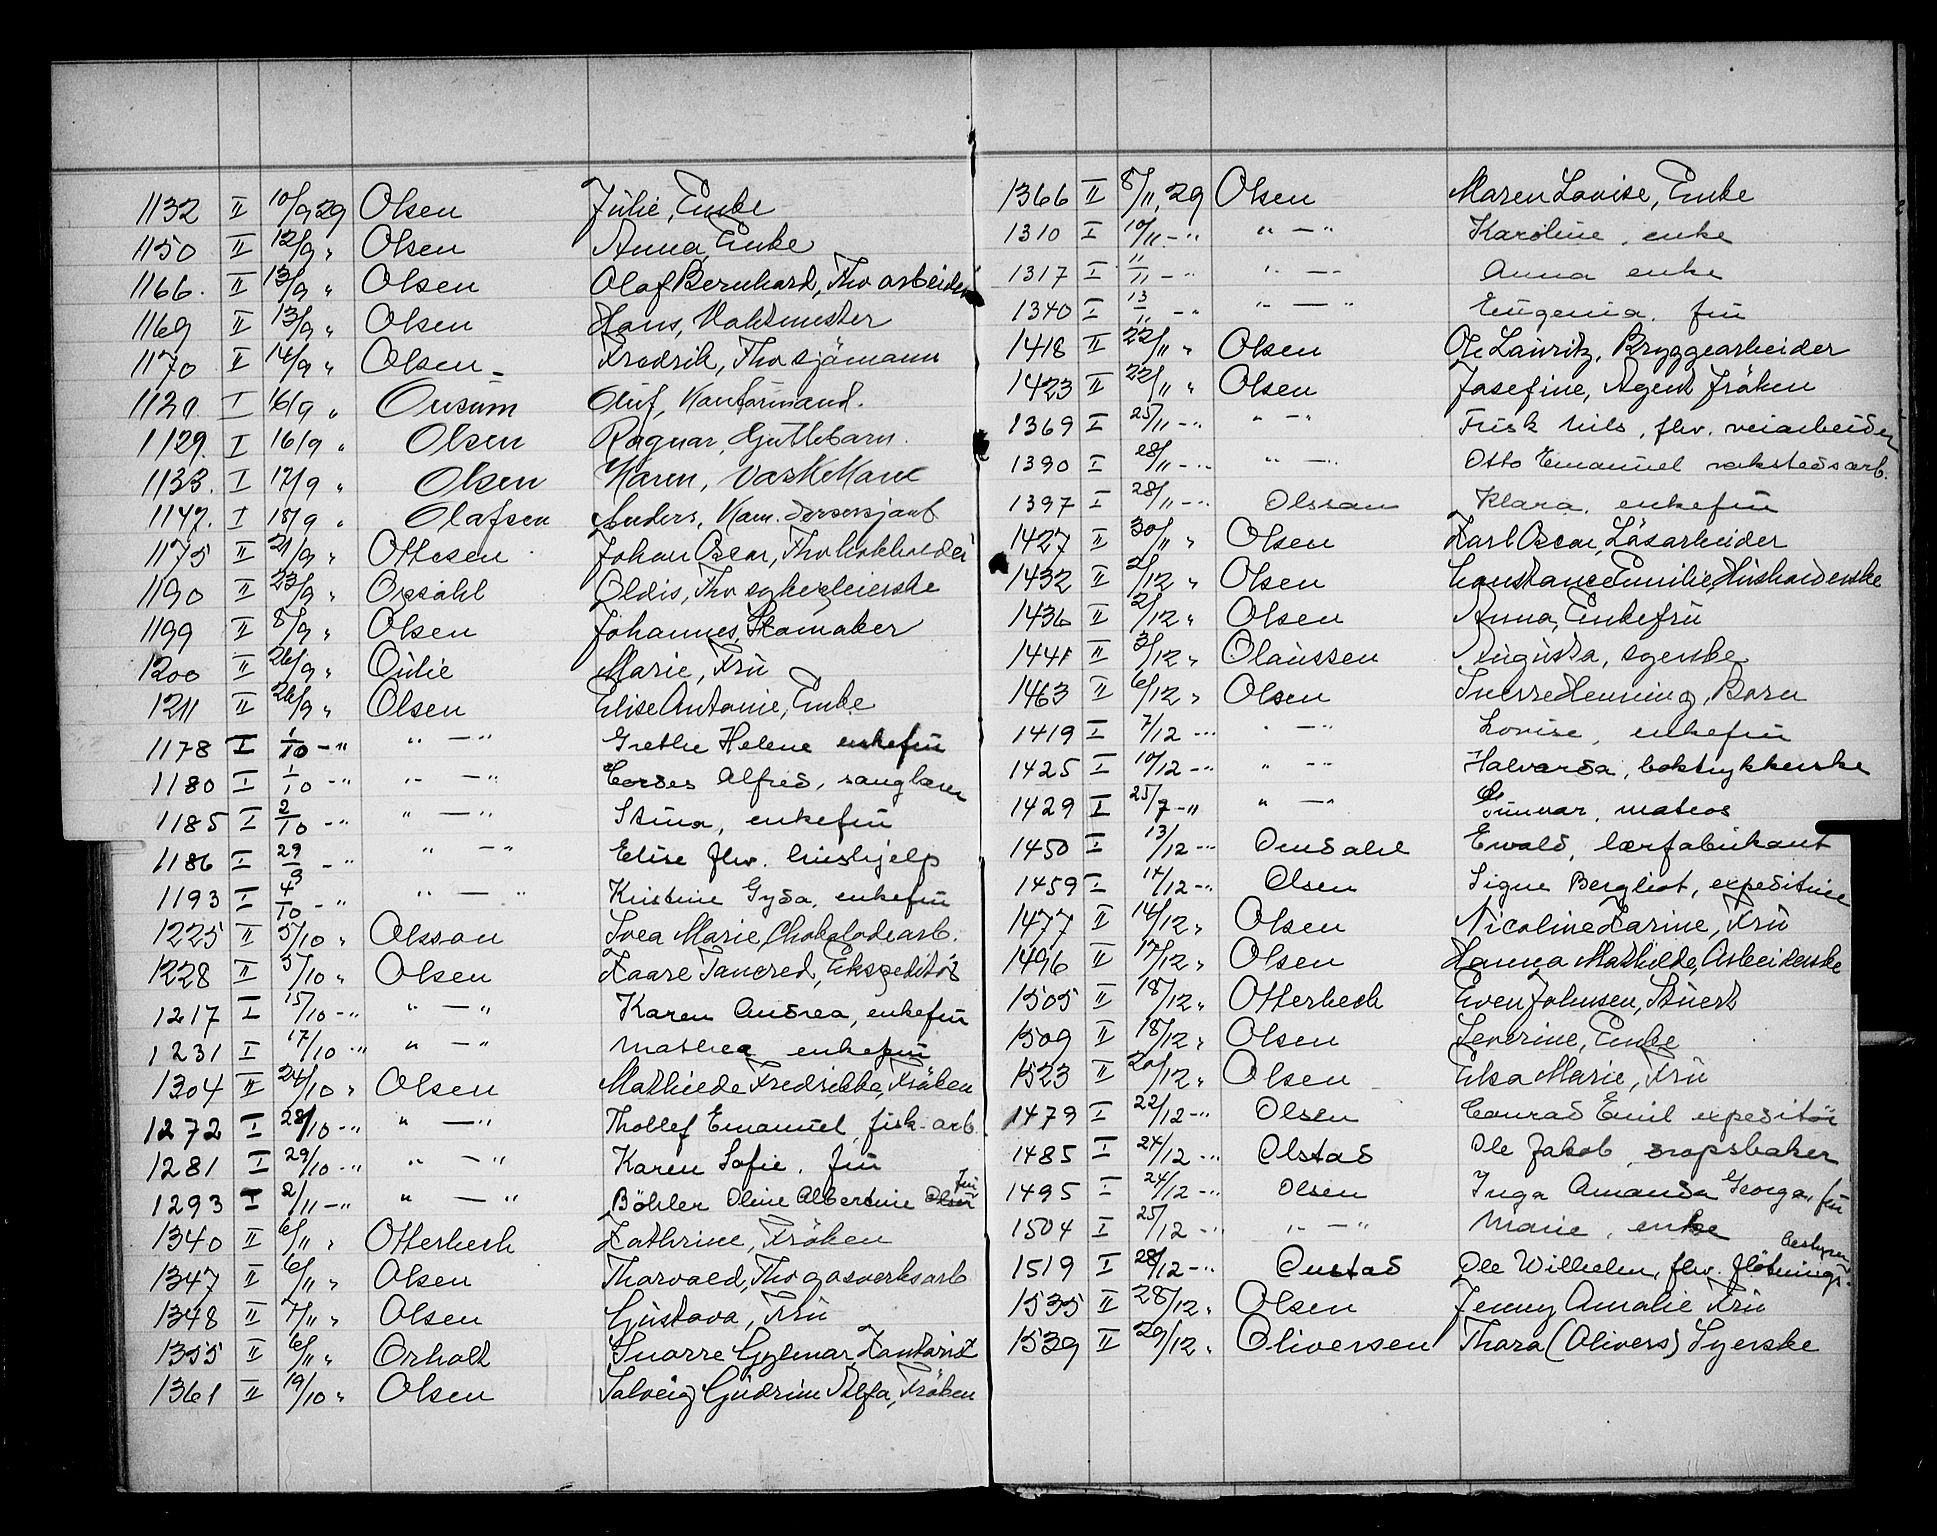 1132 II 10/9 29 Olsen Julie, Enke
1150 II 12/9 " Olsen Anna, Enke
1166. II 13/9 " Olsen Olaf Bernhard, Fhv arbeider
1169 II 13/9 " Olsen Hans, Vaktmester
1170 II 14/9 " Olsen Fredrik, Fhv sjömann
I 16/9 " Oluf,
1129. I 16/9 " Olsen Ragnar, Guttebarn.
1133. I 17/9 " Olsen Karen, Vaskekone
I 18/9 " Olafsen Anders,
1175 II 21/9 " Ottesen Johan Oscar, Fhv
1190 II 23/9 " Opsahl Oldis, Fhv sykepleierske
1199 II 8/9 " Olsen Johannes, Skomaker
1200 II 26/9 " Oulie Marie, Fru
1211 II 26/9 " Olsen Elise Antonie, Enke
1178 I 1/10 -" " — " Grethe Helene enkefru
1180 I 1/10 -" " — " Cordes Alfred, sanglærer
1185 I 2/10 -" " — " Stina, enkefru
1186 I 29/9 -" " — " Elise fhv. hushjelp
1193 I 4/10 -" " — " Kristine Gyda, enkefru
1225 II 5/10 " Olsson Svea Marie, Chokoladearb.
1228 II 5/10 " Olsen Kaare Tancred, Ekspeditör
1217 I 15/10 -" " — " Karen Andrea, enkefru
1231 I 17/10 -" " — " Mathea enkefru
1304 II 24/10 " Olsen Mathilde Fredrikke, Fröken
1272 I 28/10 -" " — " Thollef Emanuel, fisk-arb.
1281 I 29/10 -" " — " Karen Sofie. fru
1293 I 2/11 -" " — " Böhler Oline Albertine Olsen fru
1340 II 6/11 " Otterbech Kathrine, Fröken
1347 II 6/11 " Olsen Thorvald, Fhv gasverksarb
1348 II 7/11 " Olsen Gustava, Fru
1355 II 6/11 " Orholt Snorre Hjelmar, Kontorist
1361 II 19/10 " Olsen Solveig Gudrun Alfa, Fröken
1366 II 8/11 29 Olsen Maren Lovise, Enke
1310 I 10/11 -" " — " Karoline, enke
1317 I 11/11 -" " — " Anna enke
1340 I 13/11 -" " — " Eugenia. fru
1418 II 22/11 " Olsen Ole Lauritz, Bryggearbeider
1423 II 22/11 " Olsen Josefine, Agent Fröken
1369 I 25/11 -" " — " Frisk Nils, fhv. veiarbeider
1390 I 28/11 -" " — " Otto Emanuel verkstedsarb.
1397 I 28/11 -" Olssan Klara, enkefru
1427 II 30/11 " Olsen Karl Oscar, Läsarbeider
1432 II 2/12 " Olsen Constance Emilie, Husholderske
1436 II 2/12 " Olsen Anna, Enkefru
1441 II 3/12 " Olaussen Augusta, syerske
1463 II 6/12 " Olsen Sverre Henning, Barn
1419 I 7/12 -" " — " Lovise, enkefru
1425 I 10/12 -" " — " Halvarda, boktrykkerske
1429 I 25/7 -" " — " Gunvar, matros
1450 I 13/12 -" Omdahl Ewald, lærfabrikant
1459 I 14/12 -" Olsen Signe Bergliot, expeditrice
1477 II 14/12 " Olsen Nicoline Karine, Fru
1496 II 17/12 " Olsen Hanna Mathilde, Arbeiderske
1505 II 18/12 " Otterbech Even Johnsen, Stuert
1509 II 18/12 " Olsen Severine, Enke
1523 II 20/12 " Olsen Elsa Marie, Fru
1479 I 22/12 -" Olsen Conrad Emil expeditör
1485 I 24/12 -" Olstad Ole Jakob, dropsbaker
1495 I 24/12 -" Olsen Inga Amanda Georga, fru
1504 I 25/12 -" " — " Marie, enke
1519 I 28/12 -" Onstad Ole Wilhelm, fhv. flötnings bestyrer
1535 II 28/12 " Olsen Jenny Amalie Fru
1539 II 29/12 " Oliversen Thora (Olivers) Syerske